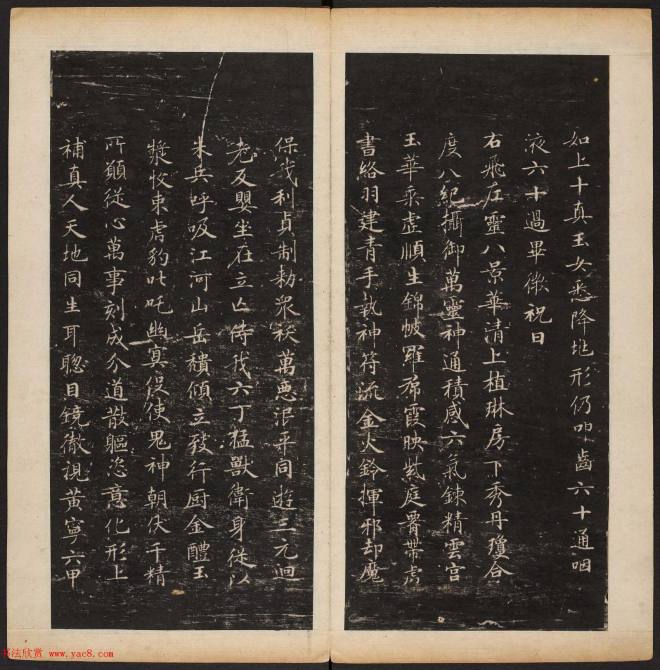 如上十真玉女悉降地形仍叩齒六十通咽
液六十過畢微祝曰
右飛左靈八景華清上植琳房下秀丹瓊合
度八紀攝御萬靈神通積感六氣鍊精雲宮
玉華乘虛順生錦帔羅帬霞映紫庭腰帶虎
書絡羽建青手執神符流金火鈴揮邪却魔
保我利貞制勑眾祅萬惡泯平同遊三元迴
老反嬰坐在立亡侍我六丁猛獸衛身從以
朱兵呼吸江河山岳穨傾立致行厨金醴玉
漿收束虎豹叱吒幽冥役使鬼神朝伏千精
所願從心萬事刻成分道散軀恣意化形上
補真人天地同生耳聰目鏡徹視黃寧六甲
书法欣赏 www.yac8.com